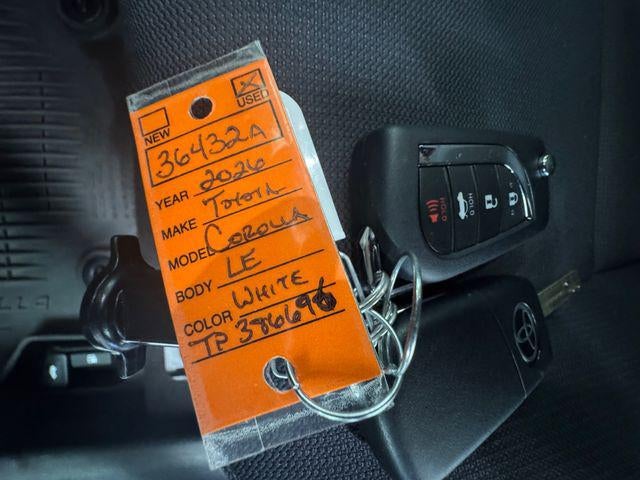 NEW
USED
36432A
YEAR 2026
MAKE TOYOTA
MODEL COROLLA
BODY LE
COLOR WHITE
TP 386696
HOLD
HOLD